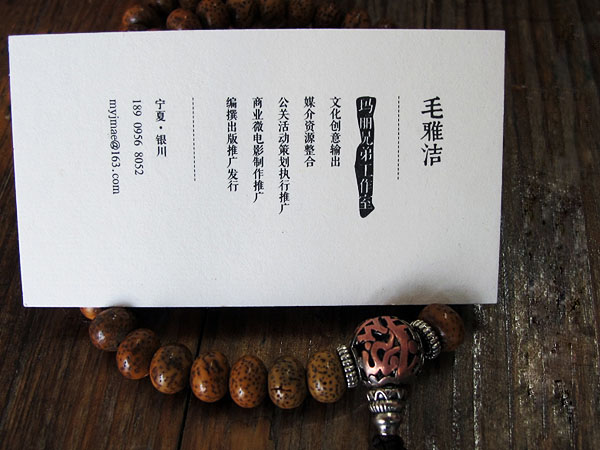 毛雅洁
玛朋兄弟工作室
文化创意输出
媒介资源整合
公关活动策划执行推广
商业微电影制作推广
编撰出版推广发行
宁夏·银川
189 0956 8052
myjmae@163.com